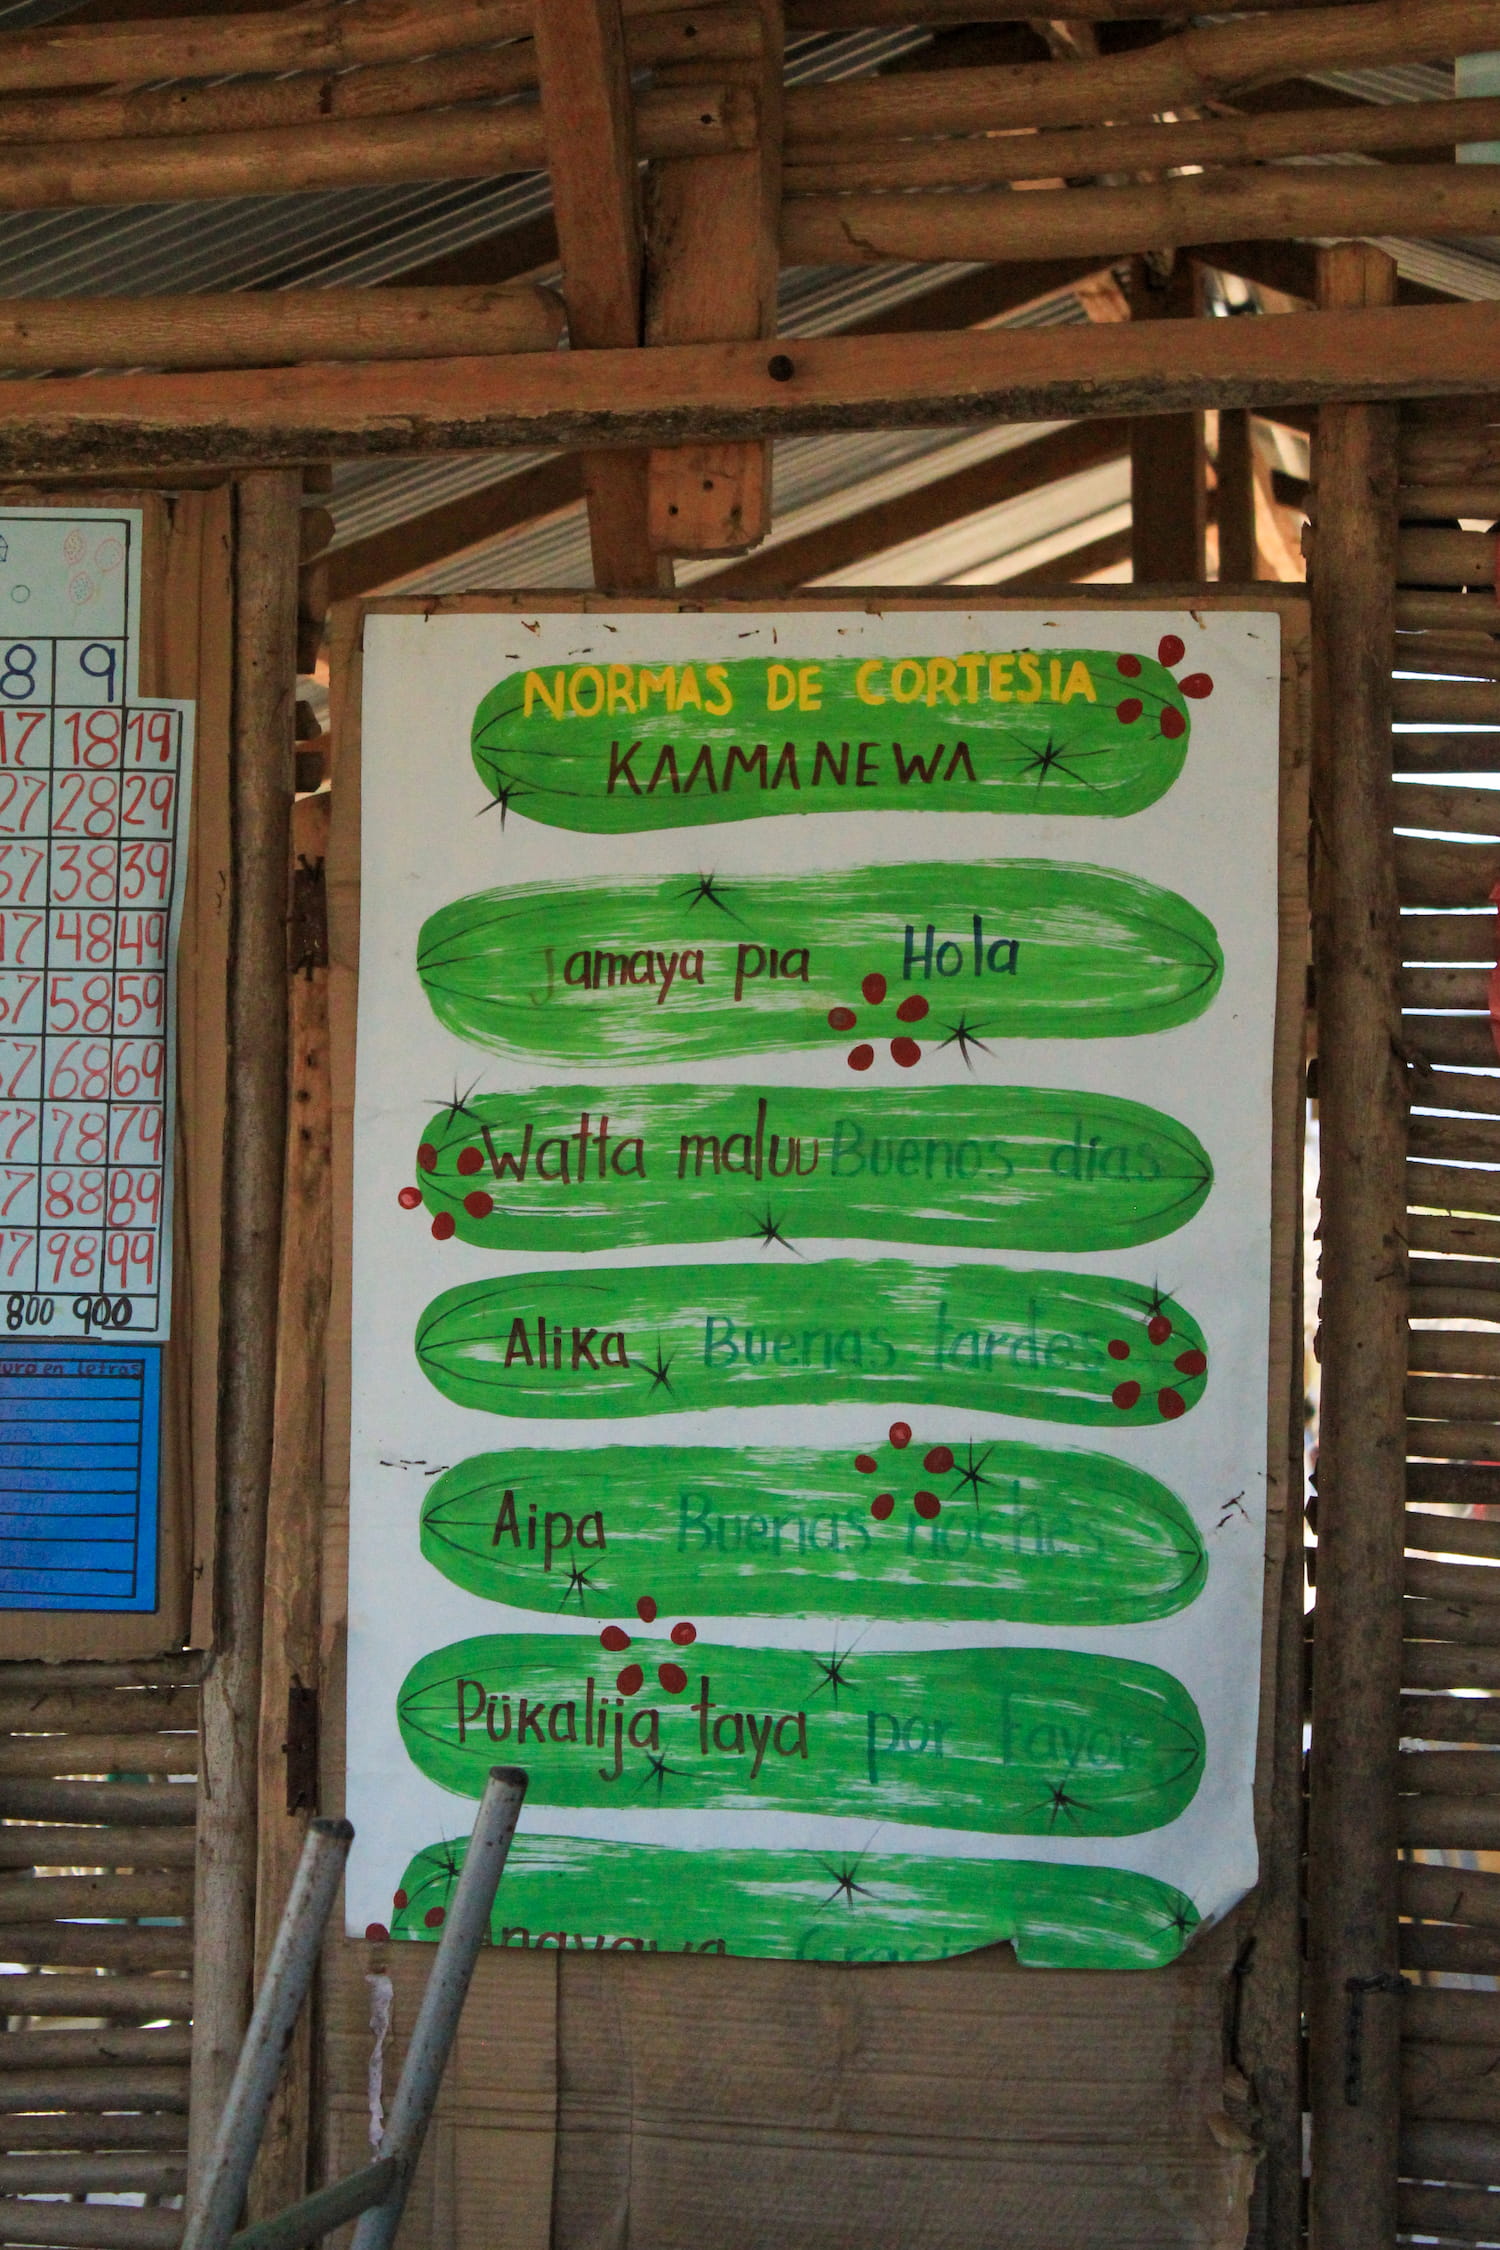 NORMAS DE CORTESIA
KAAMANEWA
Jamaya pia Hola
Watta maluu Buenos días
Alika Buenas tardes
Aipa Buenas noches
Pükalija taya por favor
8 9
17 18 19
27 28 29
37 38 39
47 48 49
57 58 59
67 68 69
77 78 79
87 88 89
97 98 99
800 900
en letras